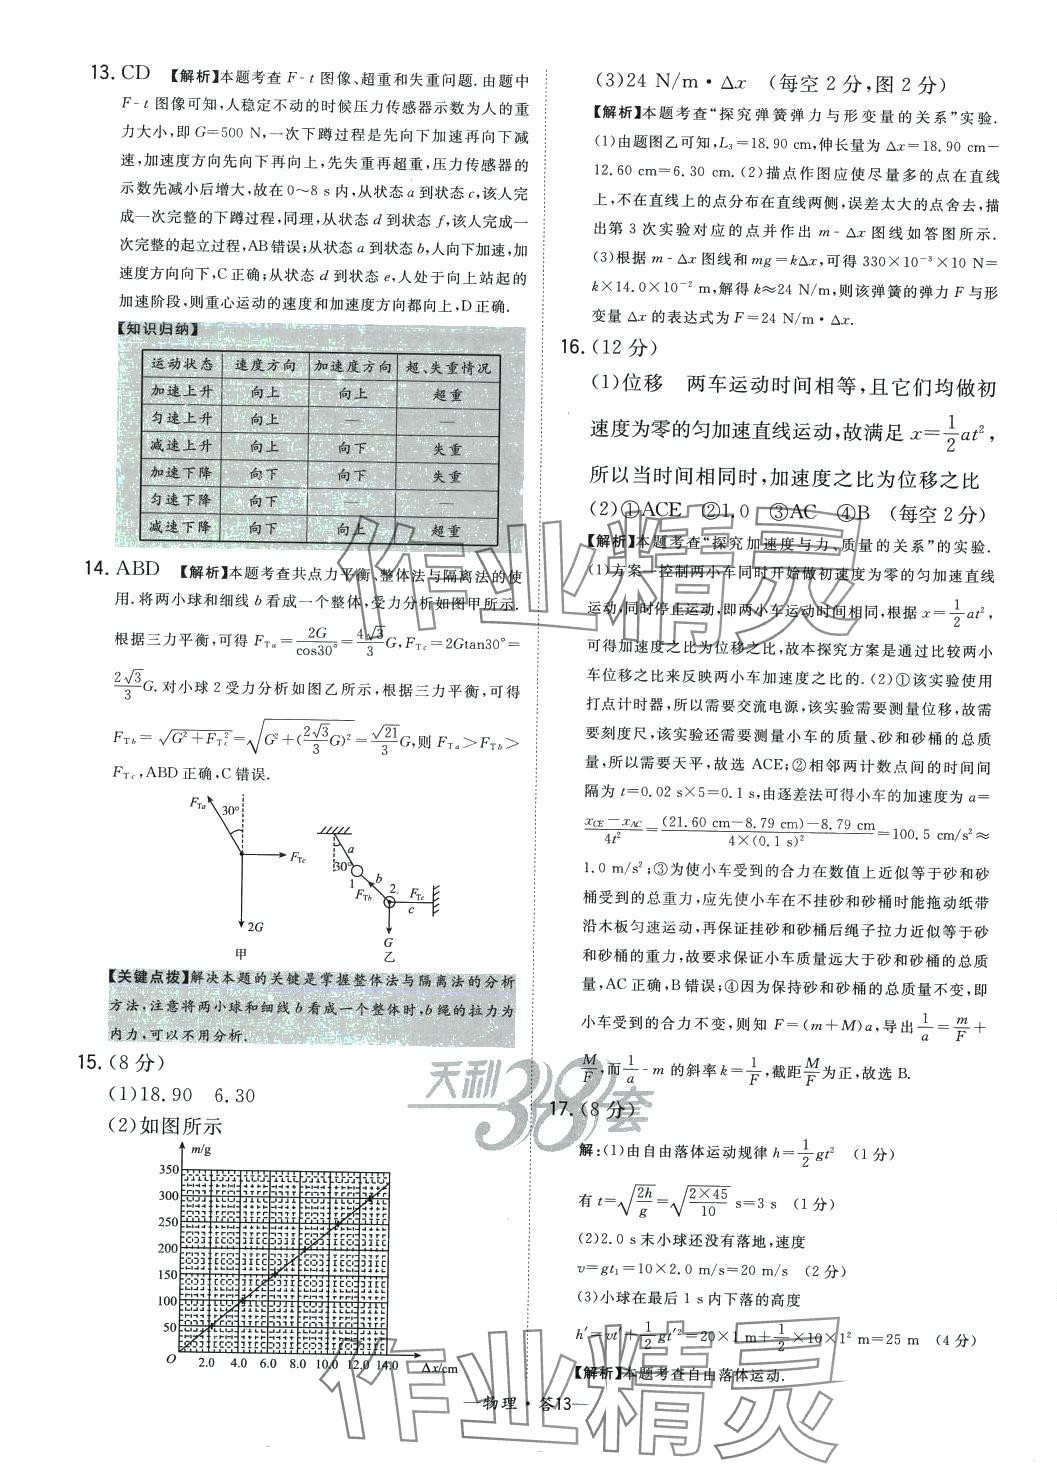 13. CD 【解析】本题考查 F-t 图像、超重和失重问题. 由题中
F-t 图像可知,人稳定不动的时候压力传感器示数为人的重
力大小,即 G=500 N,一次下蹲过程是先向下加速再向下减
速,加速度方向先向下再向上,先失重再超重,压力传感器的
示数先减小后增大,故在 0～8 s 内,从状态 a 到状态 c,该人完
成一次完整的下蹲过程,同理,从状态 d 到状态 f,该人完成一
次完整的起立过程,AB 错误;从状态 a 到状态 b,人向下加速,加
速度方向向下,C 正确;从状态 d 到状态 e,人处于向上站起的
加速阶段,则重心运动的速度和加速度方向都向上,D 正确.
【知识归纳】
运动状态 速度方向 加速度方向 超、失重情况
加速上升 向上 向上 超重
匀速上升 向上 — —
减速上升 向上 向下 失重
加速下降 向下 向下 失重
匀速下降 向下 — —
减速下降 向下 向上 超重
14. ABD 【解析】本题考查共点力平衡、整体法与隔离法的使
用. 将两小球和细线 b 看成一个整体,受力分析如图甲所示.
根据三力平衡,可得 F_Ta = 2G/cos30° = 4√3/3 G, F_Tc = 2Gtan30° =
2√3/3 G. 对小球 2 受力分析如图乙所示,根据三力平衡,可得
F_Tb = √(G²+F_Tc²) = √(G²+(2√3/3 G)²) = √21/3 G,则 F_Ta>F_Tb>
F_Tc,ABD 正确,C 错误.
F_Ta 30° F_Tc 2G 甲
a 30° 1 b F_Tb 2 F_Tc c G 乙
【关键点拨】解决本题的关键是掌握整体法与隔离法的分析
方法,注意将两小球和细线 b 看成一个整体时,b 绳的拉力为
内力,可以不用分析.
15. (8 分)
(1)18.90 6.30
(2)如图所示
m/g
350
300
250
200
150
100
50
O 2.0 4.0 6.0 8.0 10.0 12.0 14.0 Δx/cm
(3)24 N/m·Δx (每空 2 分,图 2 分)
【解析】本题考查“探究弹簧弹力与形变量的关系”实验.
(1)由题图乙可知,L₃=18.90 cm,伸长量为 Δx=18.90 cm-
12.60 cm=6.30 cm. (2)描点作图应使尽量多的点在直线
上,不在直线上的点分布在直线两侧,误差太大的点舍去,描
出第 3 次实验对应的点并作出 m-Δx 图线如答图所示.
(3)根据 m-Δx 图线和 mg=kΔx,可得 330×10⁻³×10 N=
k×14.0×10⁻² m,解得 k≈24 N/m,则该弹簧的弹力 F 与形
变量 Δx 的表达式为 F=24 N/m·Δx.
16. (12 分)
(1)位移 两车运动时间相等,且它们均做初
速度为零的匀加速直线运动,故满足 x=1/2 at²,
所以当时间相同时,加速度之比为位移之比
(2)①ACE ②1.0 ③AC ④B (每空 2 分)
【解析】本题考查“探究加速度与力、质量的关系”的实验.
(1)方案一控制两小车同时开始做初速度为零的匀加速直线
运动,同时停止运动,即两小车运动时间相同,根据 x=1/2 at²,
可得加速度之比为位移之比,故本探究方案是通过比较两小
车位移之比来反映两小车加速度之比的. (2)①该实验使用
打点计时器,所以需要交流电源,该实验需要测量位移,故需
要刻度尺,该实验还需要测量小车的质量、砂和砂桶的总质
量,所以需要天平,故选 ACE;②相邻两计数点间的时间间
隔为 t=0.02 s×5=0.1 s,由逐差法可得小车的加速度为 a=
(x_CE-x_AC)/4t² = ((21.60 cm-8.79 cm)-8.79 cm)/(4×(0.1 s)²) =100.5 cm/s²≈
1.0 m/s²;③为使小车受到的合力在数值上近似等于砂和砂
桶受到的总重力,应先使小车在不挂砂和砂桶时能拖动纸带
沿木板匀速运动,再保证挂砂和砂桶后绳子拉力近似等于砂
和砂桶的重力,故要求保证小车质量远大于砂和砂桶的总质
量,AC 正确,B 错误;④因为保持砂和砂桶的总质量不变,即
小车受到的合力不变,则知 F=(m+M)a,导出 1/a = m/F +
M/F,而 1/a-m 的斜率 k=1/F,截距 M/F 为正,故选 B.
17. (8 分)
解:(1)由自由落体运动规律 h=1/2 gt² (1 分)
有 t=√(2h/g)=√(2×45/10) s=3 s (1 分)
(2)2.0 s 末小球还没有落地,速度
v=gt₁=10×2.0 m/s=20 m/s (2 分)
(3)小球在最后 1 s 内下落的高度
h′=vt′+1/2 gt′²=20×1 m+1/2×10×1² m=25 m (4 分)
【解析】本题考查自由落体运动.
—物理·答13—
天利38套
作业精灵
作业精灵